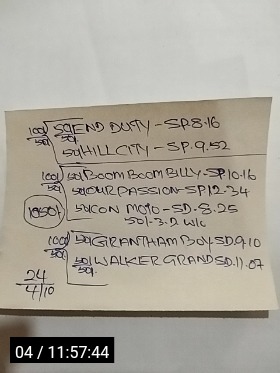 100/ 50/ END DUTY - SP.8.16
50/ 50/
50/ HILLCITY - SP.9.52
100/ 50/ BOOM BOOM BILLY - SP 10.16
50/ 50/ OUR PASSION - SP 12.34
50/ CON MOTO - SD.8.25
50/-3.2 W/C
100/ 50/ GRANTHAM BOY - SD.9.10
50/ 50/ WALKER GRAND SD.11.07
50/
24
4/10
04 / 11:57:44